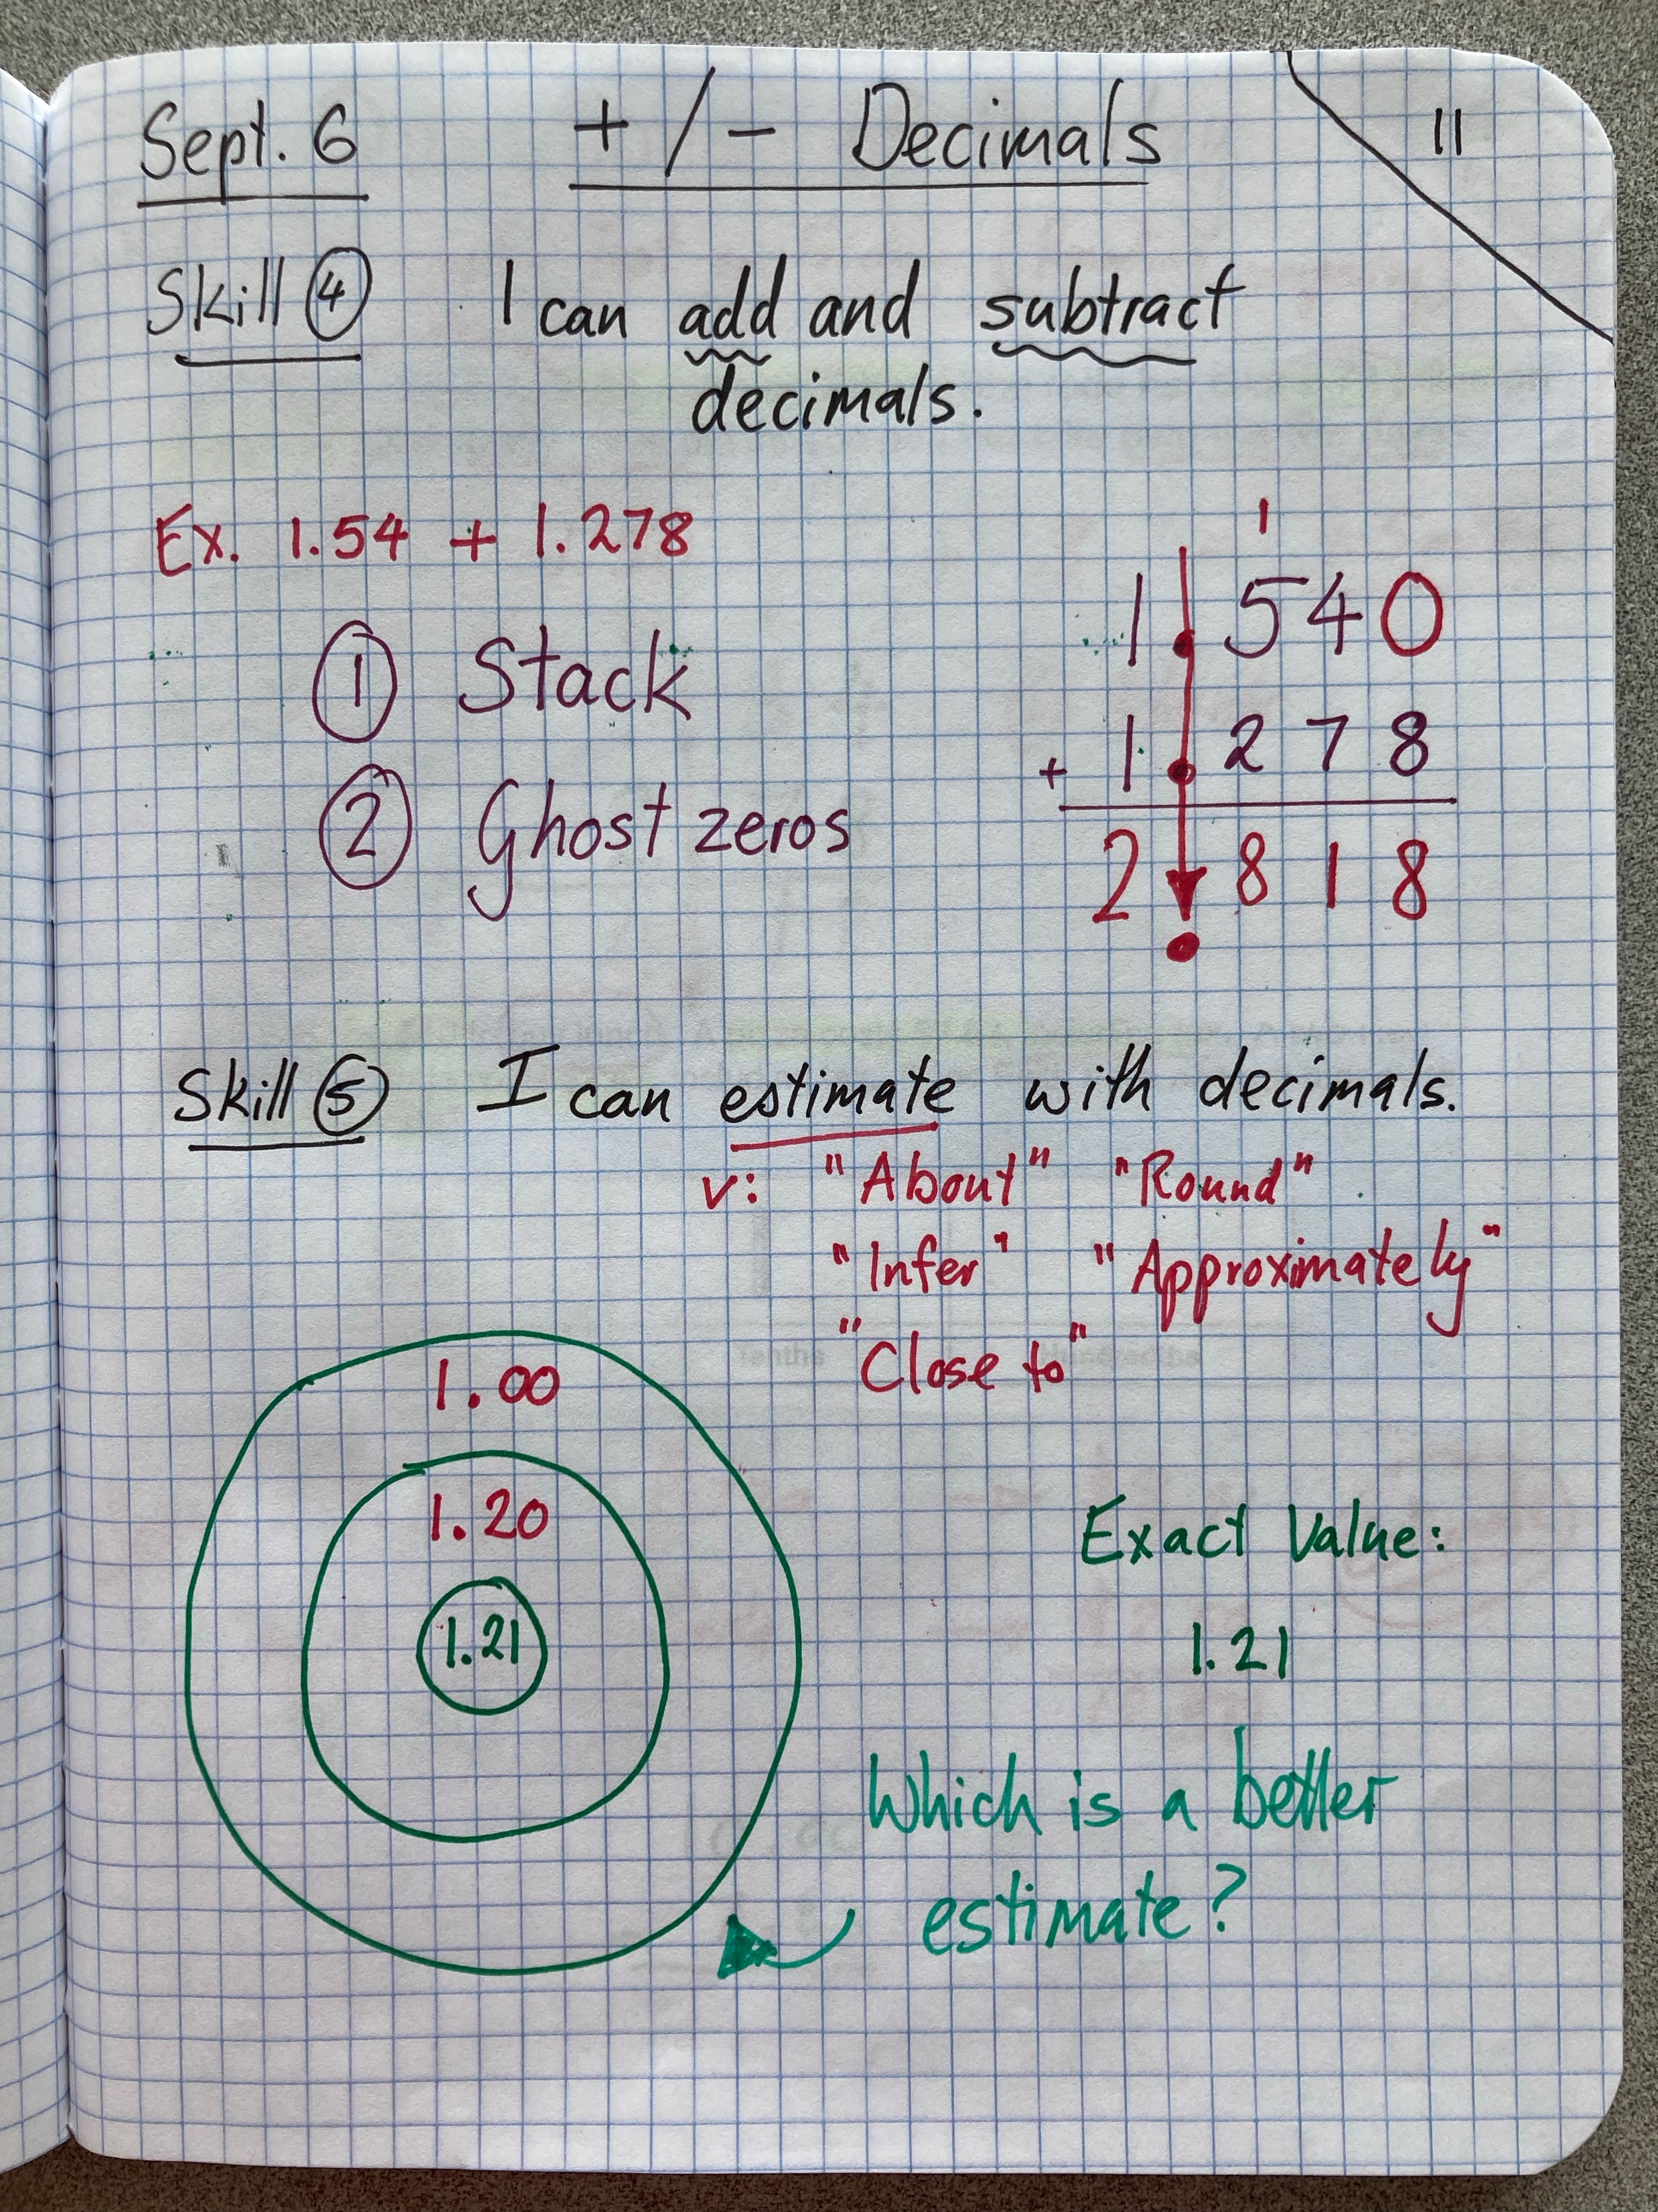 Sept. 6 + / - Decimals 11
Skill ④ I can add and subtract
decimals.
Ex. 1.54 + 1.278
① Stack
② Ghost zeros
1
1.540
+ 1.278
2.818
Skill ⑤ I can estimate with decimals.
v: "About" "Round"
"Infer" "Approximately"
"Close to"
1.00
1.20
1.21
Exact Value:
1.21
Which is a better
estimate?